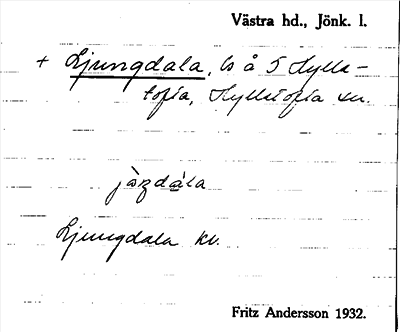 Västra hd., Jönk. l.
+ Ljungdala, ls å 5 Hylle-
tofta, Hylletofta sn.
Ljungdala kv.
Fritz Andersson 1932.